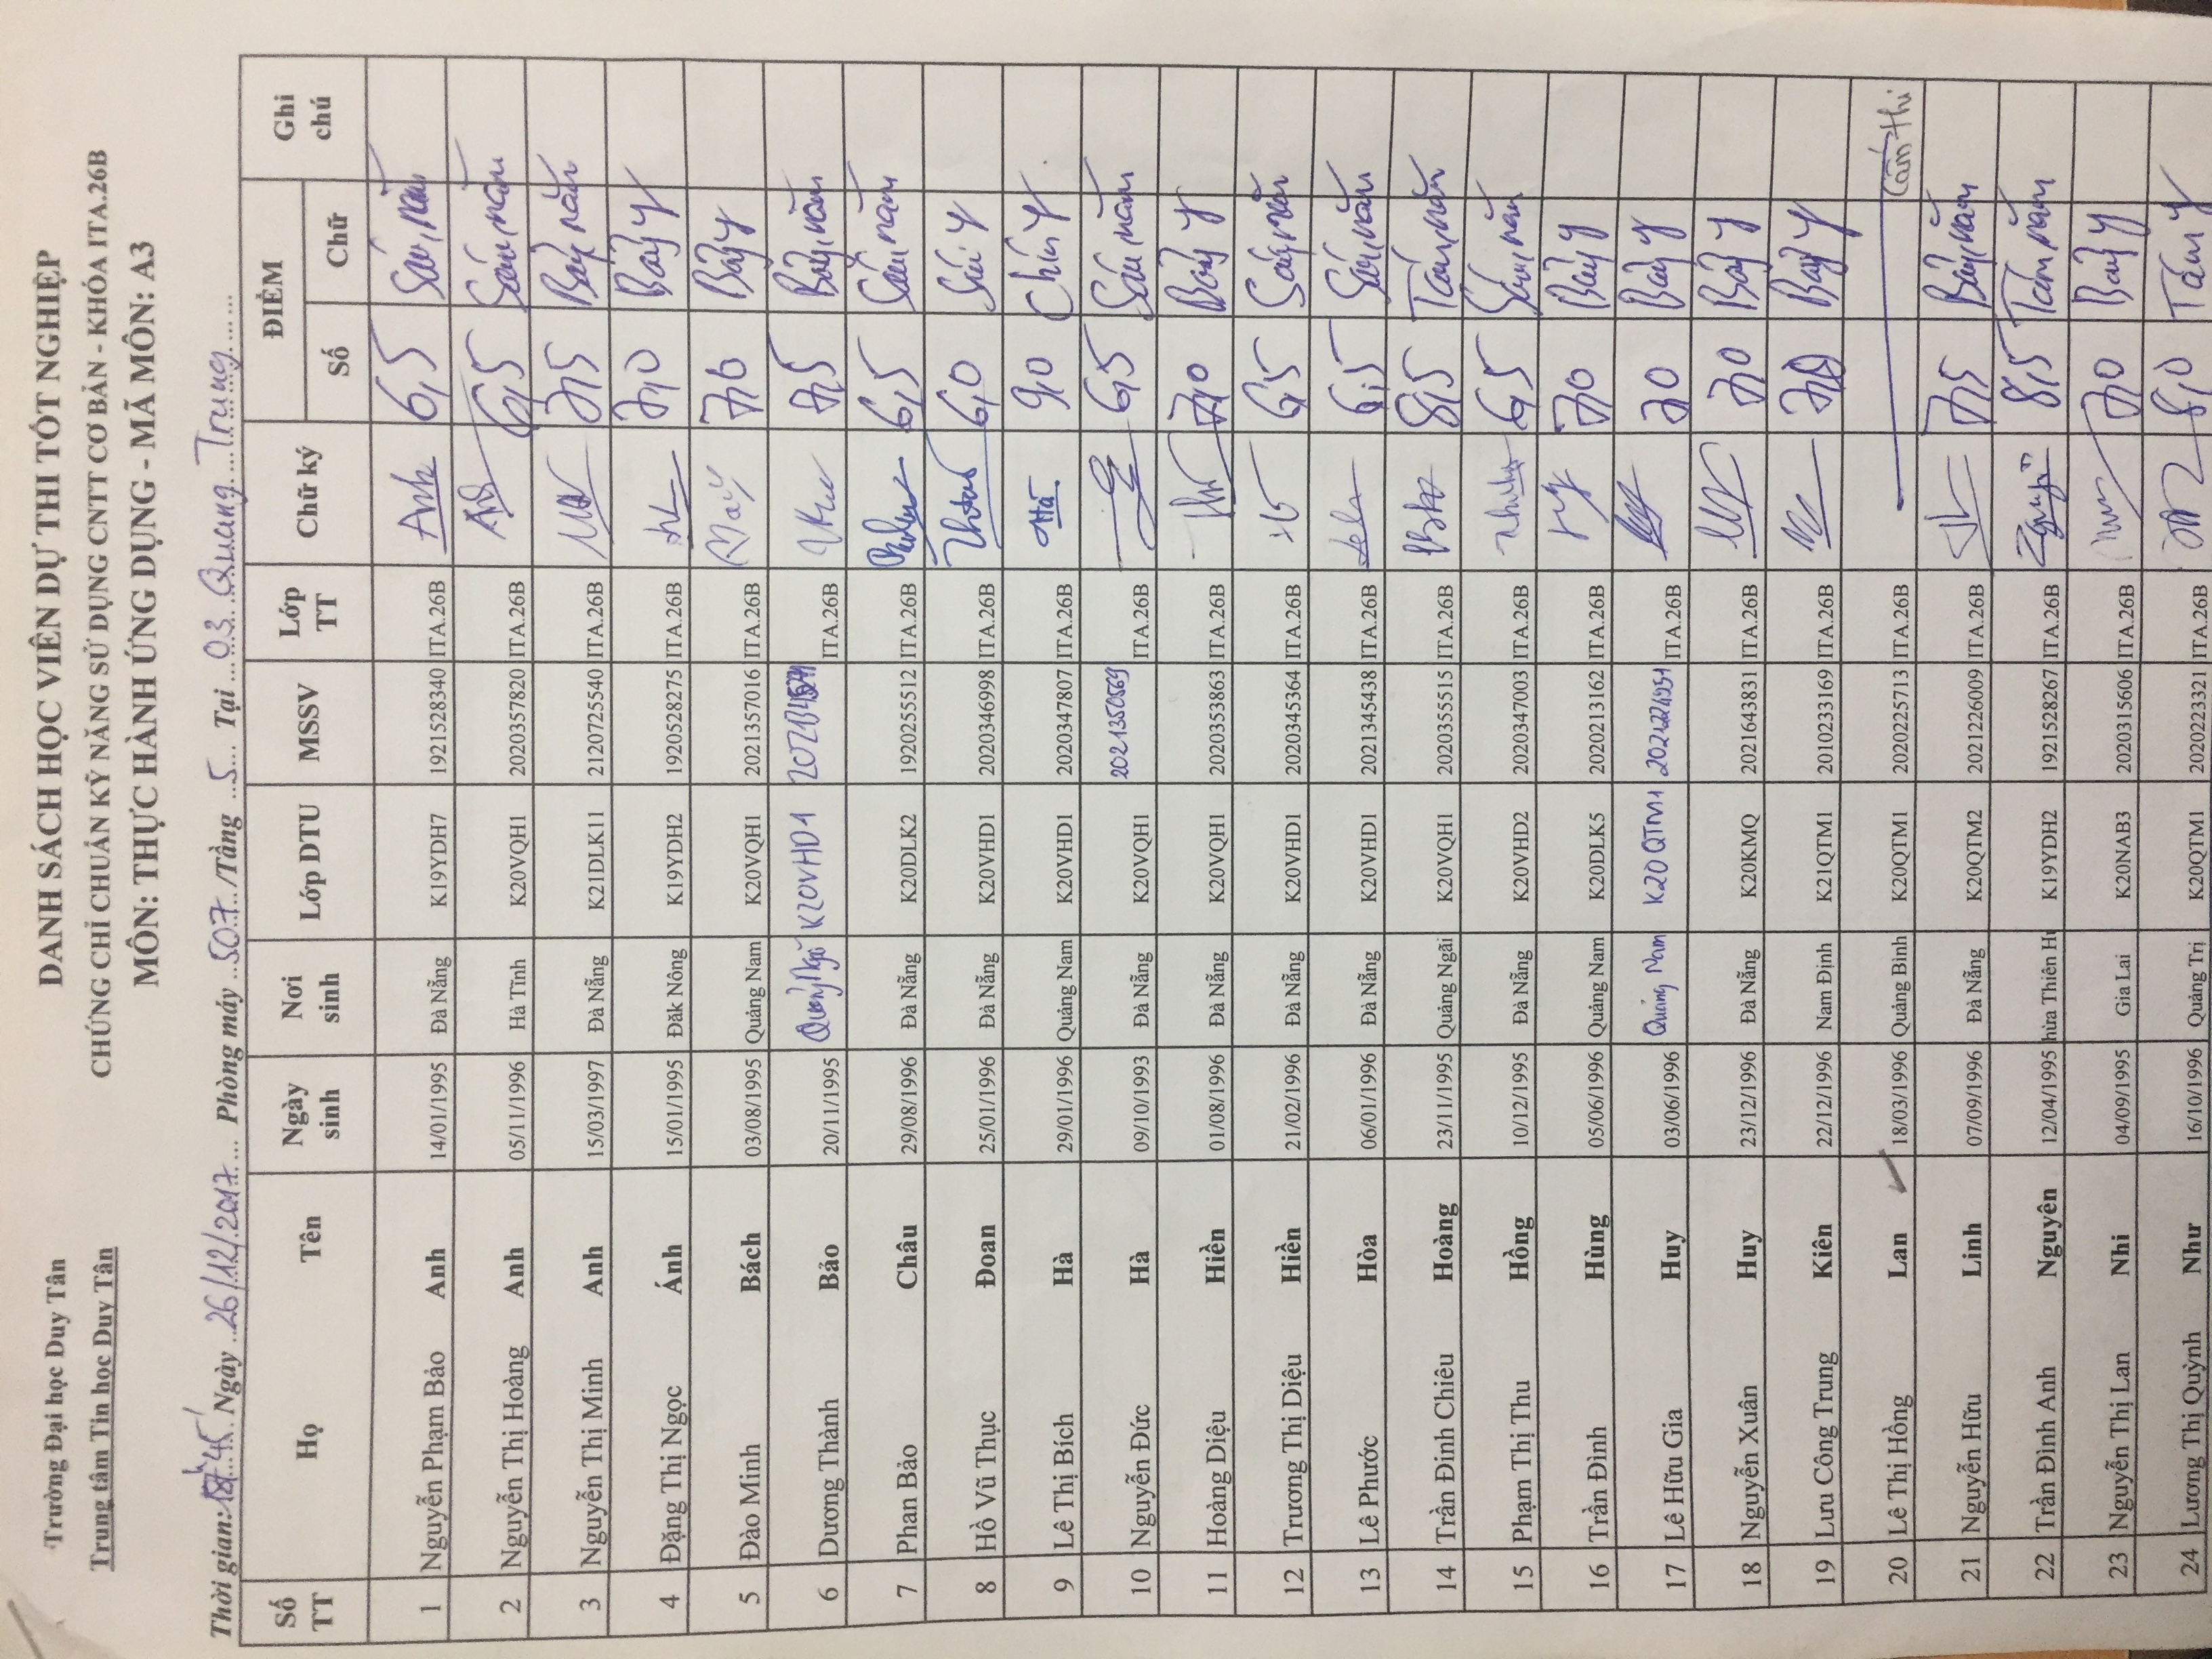 Trường Đại học Duy Tân
Trung tâm Tin học Duy Tân
DANH SÁCH HỌC VIÊN DỰ THI TỐT NGHIỆP
CHỨNG CHỈ CHUẨN KỸ NĂNG SỬ DỤNG CNTT CƠ BẢN - KHÓA ITA.26B
MÔN: THỰC HÀNH ỨNG DỤNG - MÃ MÔN: A3
Thời gian: 45' Ngày 26/12/2017 Phòng máy 507 /Tầng 5 Tại 03 Quang Trung
Số TT Họ Tên Ngày sinh Nơi sinh Lớp DTU MSSV Lớp TT Chữ ký ĐIỂM Số Chữ Ghi chú
1 Nguyễn Phạm Bảo Anh 14/01/1995 Đà Nẵng K19YDH7 1921528340 ITA.26B Anh 6,5 Sáu, năm
2 Nguyễn Thị Hoàng Anh 05/11/1996 Hà Tĩnh K20VQH1 2020357820 ITA.26B 6,5 Sáu, năm
3 Nguyễn Thị Minh Anh 15/03/1997 Đà Nẵng K21DLK11 2120725540 ITA.26B 7,5 Bảy năm
4 Đặng Thị Ngọc Ánh 15/01/1995 Đăk Nông K19YDH2 1920528275 ITA.26B 7,0 Bảy y
5 Đào Minh Bách 03/08/1995 Quảng Nam K20VQH1 2021357016 ITA.26B 7,0 Bảy y
6 Dương Thành Bảo 20/11/1995 Quảng Ngãi K20VHD1 ITA.26B 7,5 Bảy, năm
7 Phan Bảo Châu 29/08/1996 Đà Nẵng K20DLK2 1920255512 ITA.26B 6,5 Sáu, năm
8 Hồ Vũ Thục Đoan 25/01/1996 Đà Nẵng K20VHD1 2020346998 ITA.26B 6,0 Sáu y
9 Lê Thị Bích Hà 29/01/1996 Quảng Nam K20VHD1 2020347807 ITA.26B Hà 9,0 Chín y
10 Nguyễn Đức Hà 09/10/1993 Đà Nẵng K20VQH1 2021350569 ITA.26B 6,5 Sáu, năm
11 Hoàng Diệu Hiền 01/08/1996 Đà Nẵng K20VQH1 2020353863 ITA.26B 7,0 Bảy y
12 Trương Thị Diệu Hiền 21/02/1996 Đà Nẵng K20VHD1 2020345364 ITA.26B 6,5 Sáu, năm
13 Lê Phước Hòa 06/01/1996 Đà Nẵng K20VHD1 2021345438 ITA.26B 6,5 Sáu, năm
14 Trần Đinh Chiêu Hoàng 23/11/1995 Quảng Ngãi K20VQH1 2020355515 ITA.26B 8,5 Tám, năm
15 Phạm Thị Thu Hồng 10/12/1995 Đà Nẵng K20VHD2 2020347003 ITA.26B 6,5 Sáu, năm
16 Trần Đình Hùng 05/06/1996 Quảng Nam K20DLK5 2020213162 ITA.26B 7,0 Bảy y
17 Lê Hữu Gia Huy 03/06/1996 Quảng Nam K20QTM1 ITA.26B 7,0 Bảy y
18 Nguyễn Xuân Huy 23/12/1996 Đà Nẵng K20KMQ 2021643831 ITA.26B 7,0 Bảy y
19 Lưu Công Trung Kiên 22/12/1996 Nam Định K21QTM1 2010233169 ITA.26B 7,0 Bảy y
20 Lê Thị Hồng Lan 18/03/1996 Quảng Bình K20QTM1 2020225713 ITA.26B Cấm thi
21 Nguyễn Hữu Linh 07/09/1996 Đà Nẵng K20QTM2 2021226009 ITA.26B 7,5 Bảy, năm
22 Trần Đình Anh Nguyên 12/04/1995 hừa Thiên H K19YDH2 1921528267 ITA.26B 8,5 Tám, năm
23 Nguyễn Thị Lan Nhi 04/09/1995 Gia Lai K20NAB3 2020315606 ITA.26B 7,0 Bảy y
24 Lương Thị Quỳnh Như 16/10/1996 Quảng Trị K20QTM1 2020223321 ITA.26B 8,0 Tám y